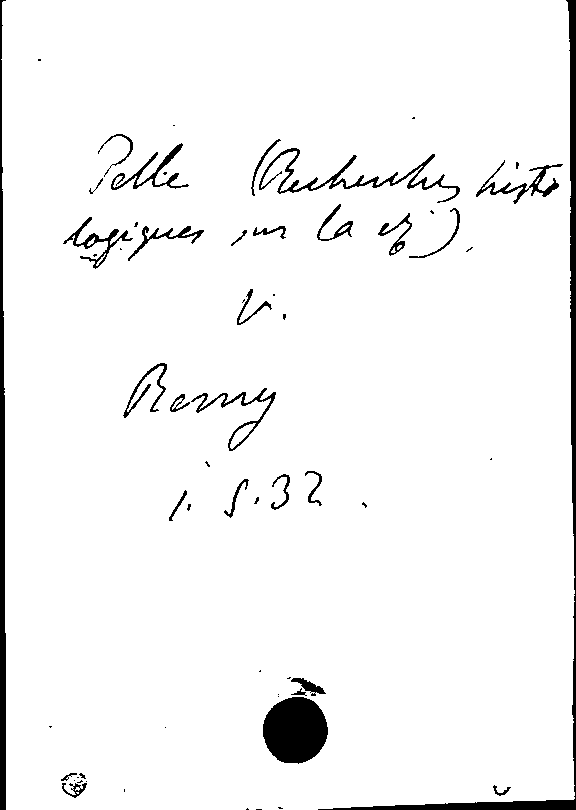 Pelle (Recherches histo
logiques sur la
V.
Remy
1. 5. 32.